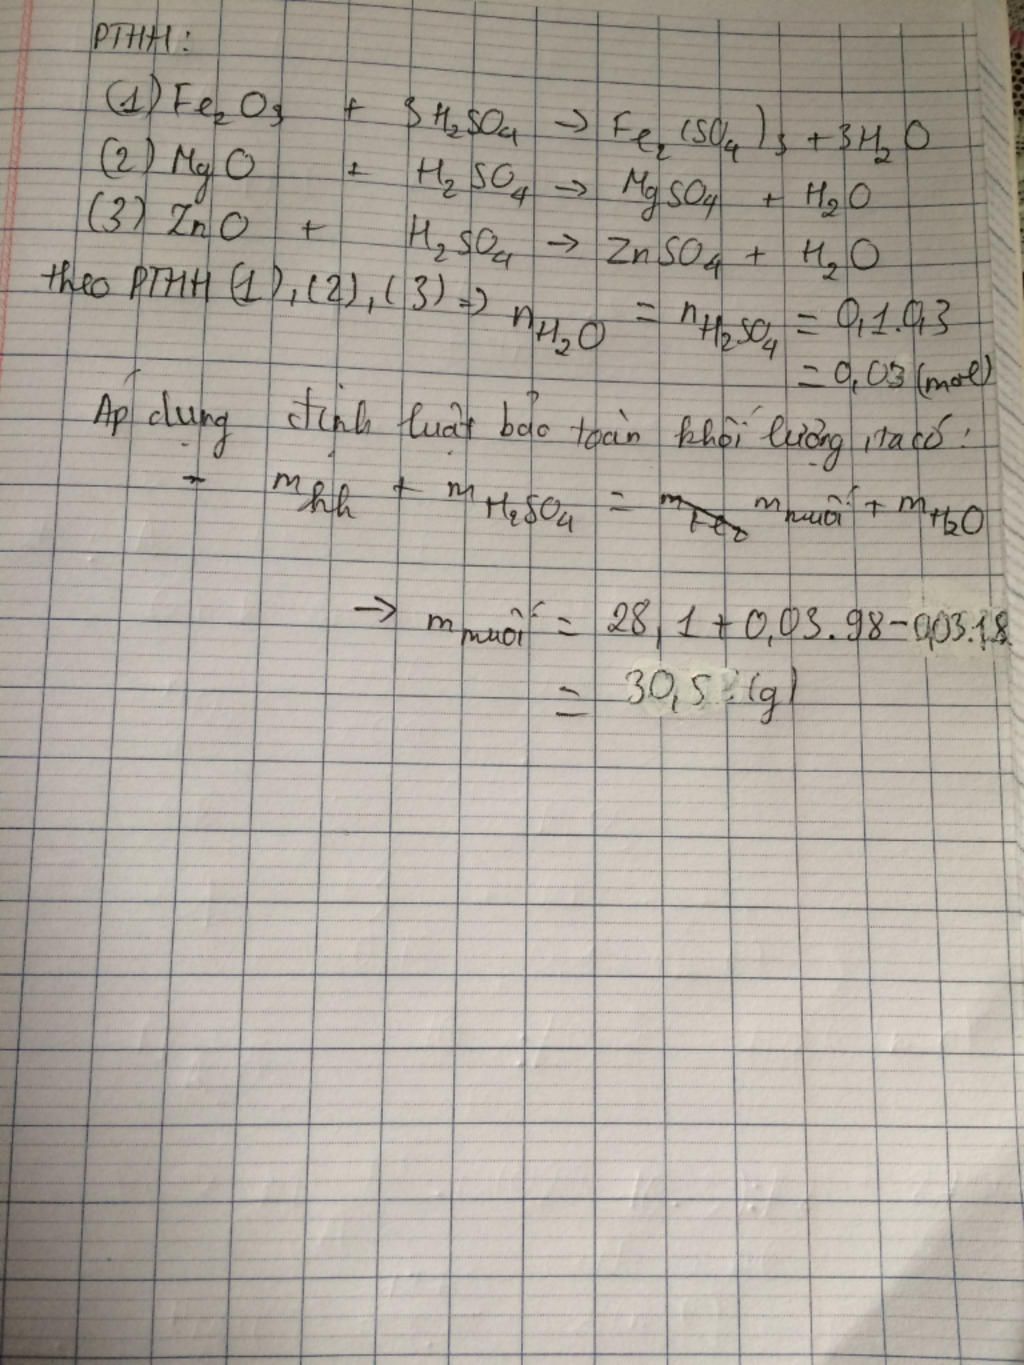 PTHH:
(1) Fe₂O₃ + 3H₂SO₄ → Fe₂(SO₄)₃ + 3H₂O
(2) MgO + H₂SO₄ → MgSO₄ + H₂O
(3) ZnO + H₂SO₄ → ZnSO₄ + H₂O
theo PTHH (1), (2), (3) => n H₂O = n H₂SO₄ = 0,1.0,3
= 0,03 (mol)
Áp dụng định luật bảo toàn khối lượng, ta có:
- m hh + m H₂SO₄ = m muối + m H₂O
→ m muối = 28,1 + 0,03.98 - 0,03.18
= 30,5 (g)